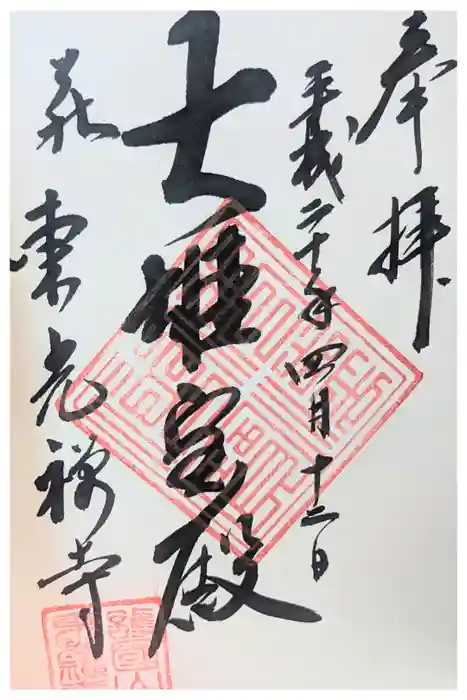 奉拝
平成二十年四月十二日
大雄宝殿
萩 東光禅寺